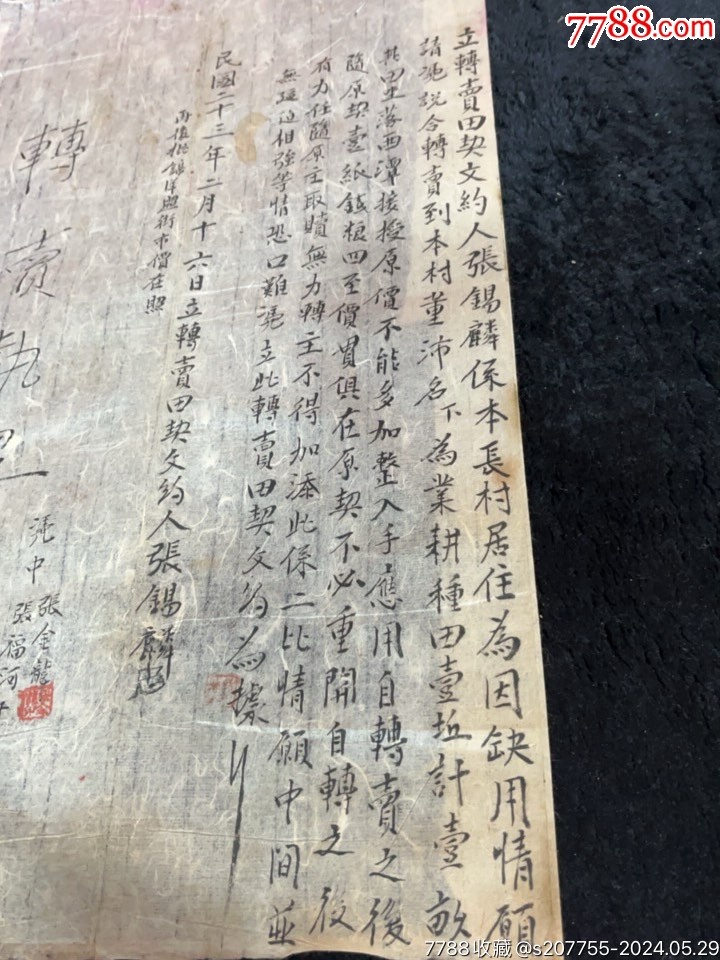 7788.com
立轉賣田契文約人張錫麟係本長村居住為因缺用情願
請憑說合轉賣到本村董沛名下為業耕種田壹坵計壹畝
其田坐落西潭接授原價不能多加整入手應用自轉賣之後
隨原契壹紙錢粮四至價買俱在原契不必重開自轉之後
有力任隨原主取贖無力轉主不得加添此係二比情願中間並
無逼迫相強等情恐口難憑立此轉賣田契文約為據
民國二十三年二月十六日立轉賣田契文約人張錫麟
再值批錢洋照街市價在照
憑中張金龍
張福河
轉賣執
7788收藏@s207755-2024.05.29